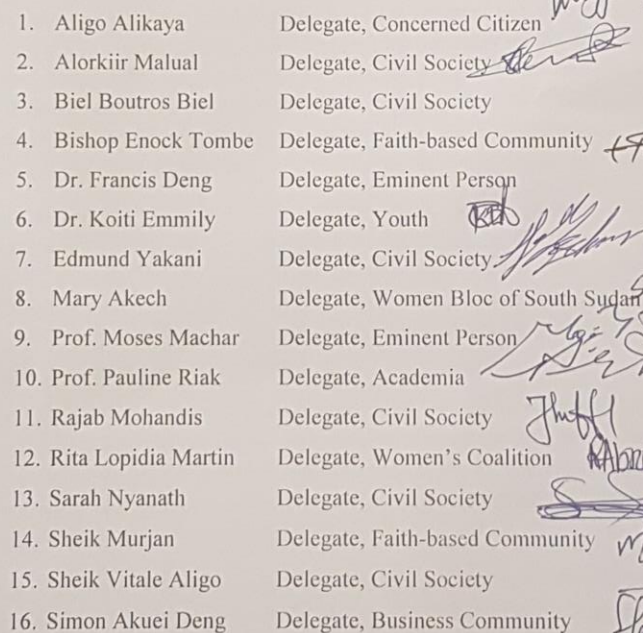 1. Aligo Alikaya Delegate, Concerned Citizen
2. Alorkiir Malual Delegate, Civil Society
3. Biel Boutros Biel Delegate, Civil Society
4. Bishop Enock Tombe Delegate, Faith-based Community
5. Dr. Francis Deng Delegate, Eminent Person
6. Dr. Koiti Emmily Delegate, Youth
7. Edmund Yakani Delegate, Civil Society
8. Mary Akech Delegate, Women Bloc of South Sudan
9. Prof. Moses Machar Delegate, Eminent Person
10. Prof. Pauline Riak Delegate, Academia
11. Rajab Mohandis Delegate, Civil Society
12. Rita Lopidia Martin Delegate, Women's Coalition
13. Sarah Nyanath Delegate, Civil Society
14. Sheik Murjan Delegate, Faith-based Community
15. Sheik Vitale Aligo Delegate, Civil Society
16. Simon Akuei Deng Delegate, Business Community